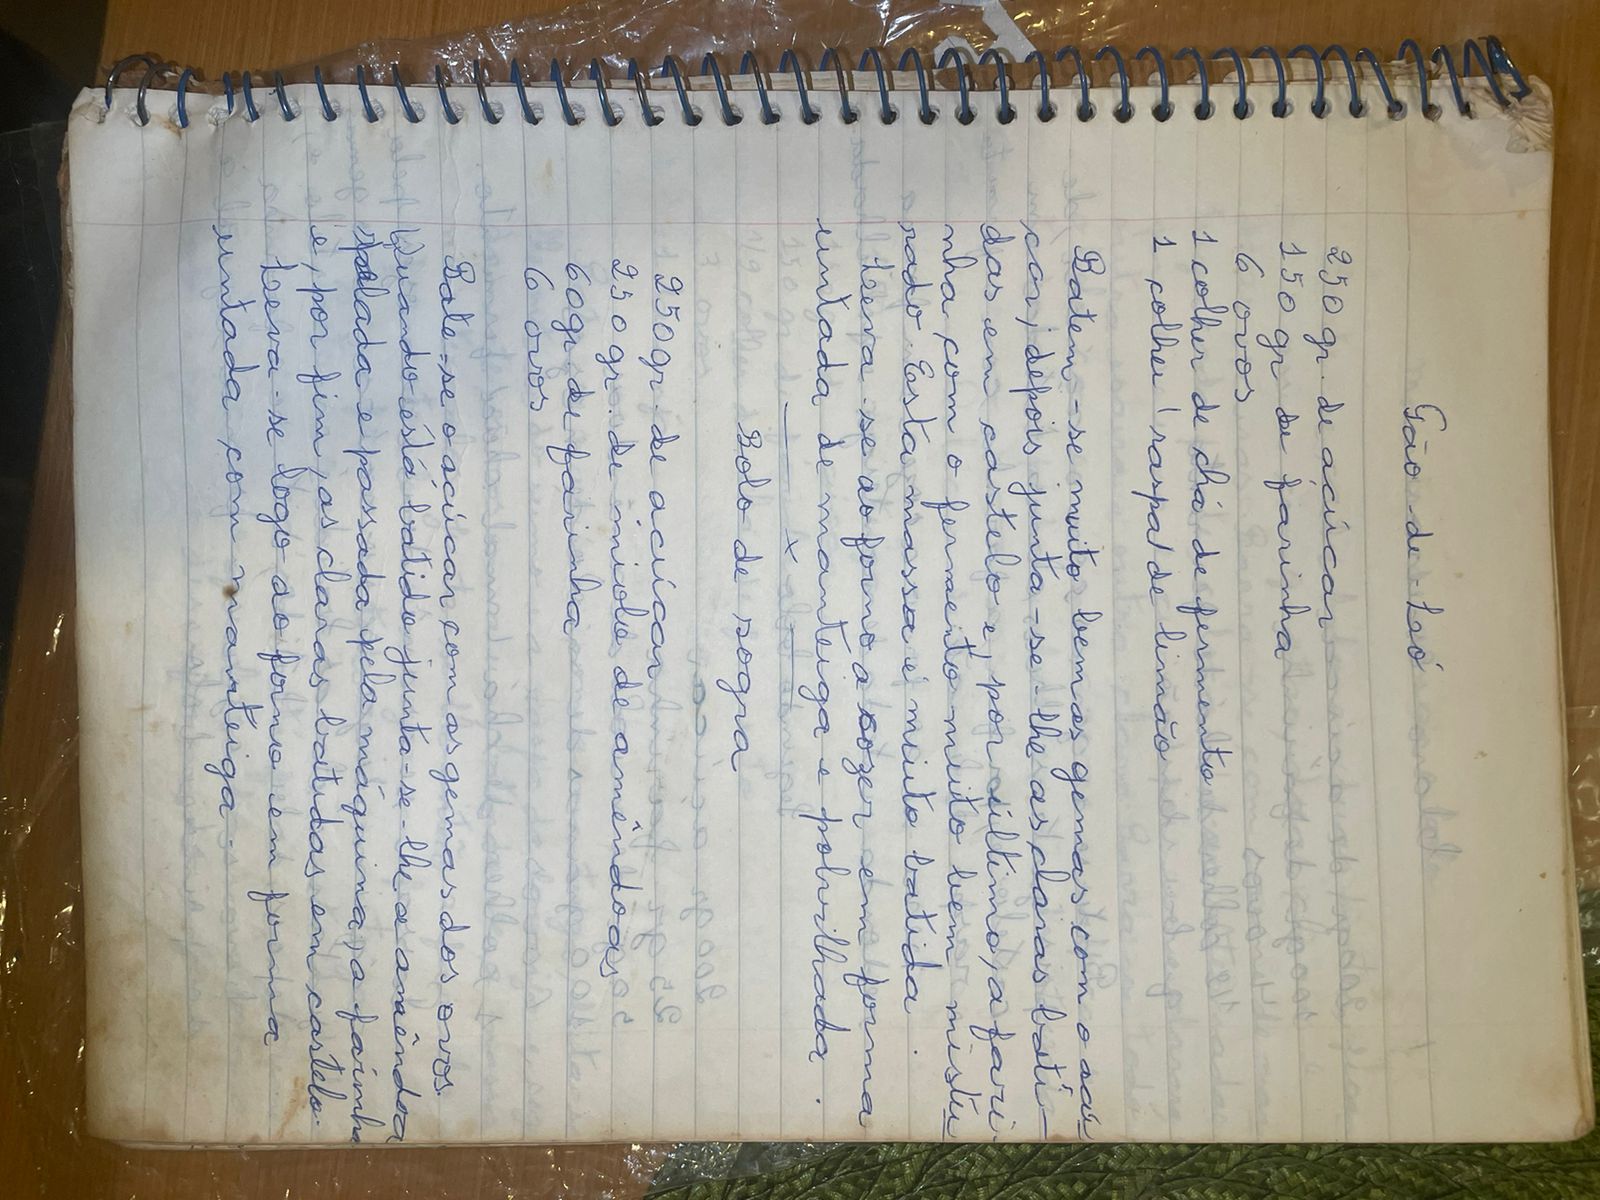 Pão-de-Ló
250 gr. de açúcar
150 gr de farinha
6 ovos
1 colher de chá de fermento
1 colher (raspa) de limão
Batem-se muito bem as gemas com o açú
car, depois junta-se-lhe as claras bati-
das em castelo e, por último, a fari-
nha, com o fermento muito bem mistu
rado. Esta massa é muito batida.
Leva-se ao forno a cozer em forma
untada de manteiga e polvilhada.
x
Bolo de sogra
250gr. de acúcar
250 gr. de miolo de amêndoas
60gr de farinha
6 ovos
Bate-se o acúcar com as gemas dos ovos.
Quando está batido junta-se-lhe a amêndoa
pelada e passada pela máquina, a farinha
e, por fim, as claras batidas em castelo.
Leva-se logo ao forno em forma
untada com manteiga.